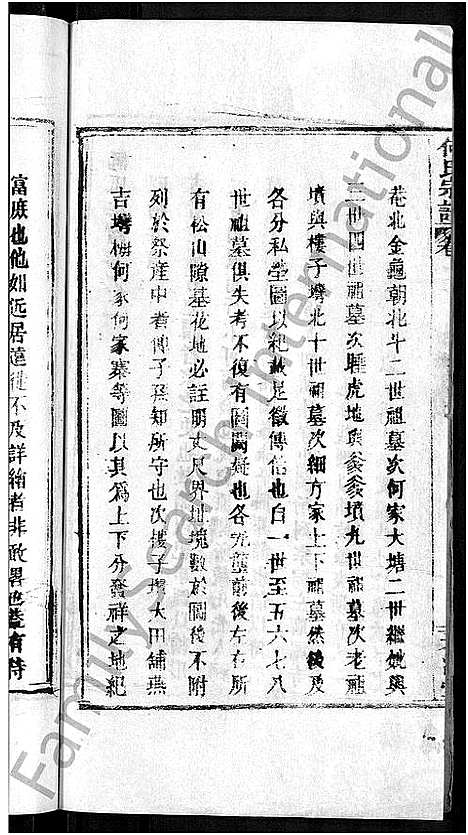 何氏宗譜 卷
巷北金龜朝北斗二世祖墓次何家大塘二世繼妣與
三世四世祖墓次睡虎地與爹爹墳九世祖墓次老龍
墳與樓子壪北十世祖墓次細方家上下祖墓然後及
各分私塋圖以紀故足徵傳信也自一世至五六七八
世祖墓俱失考不復有圖闕疑也各先塋前後左右所
有松山隙基花地必註明丈尺界址境數於圖後不附
列於祭產中者俾子孫知所守也次樓子壪大田舖燕
吉壪梅何家何家寨等圖以其為上下分發祥之地紀
富庶也他如近居遠徙不及詳繪者非敢畧也蓋有待
FamilySearch International